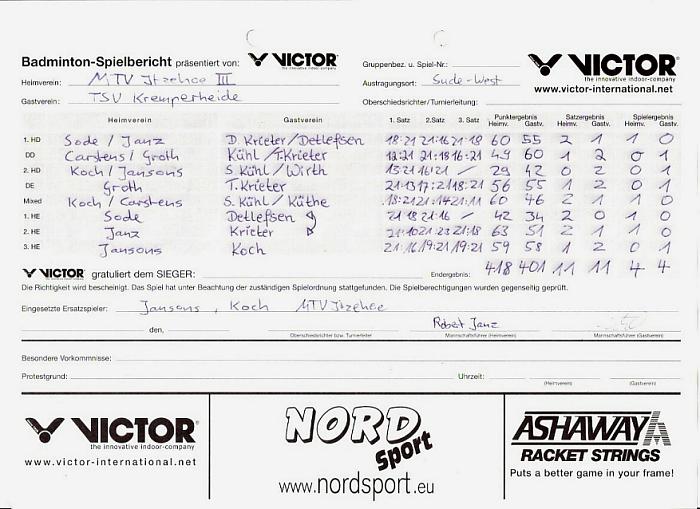 Badminton-Spielbericht präsentiert von: VICTOR the innovative indoor-company
Gruppenbez. u. Spiel-Nr.:
VICTOR the innovative indoor-company
www.victor-international.net
Heimverein: MTV Itzehoe III
Austragungsort: Sude-West
Gastverein: TSV Kremperheide
Oberschiedsrichter/Turnierleitung:
Heimverein Gastverein 1. Satz 2. Satz 3. Satz Punktergebnis Heimv. Gastv. Satzergebnis Heimv. Gastv. Spielergebnis Heimv. Gastv.
1. HD Sode / Janz D. Krieter/Detlefsen 18:21 21:16 21:18 60 55 2 1 1 0
DD Carstens / Groth Kühl / T.Krieter 12:21 21:18 16:21 49 60 1 2 0 1
2. HD Koch / Jansons S. Kühl / Wirth 13:21 16:21 / 29 42 0 2 0 1
DE Groth T. Krieter 21:13 17:21 18:21 56 55 1 2 0 1
Mixed Koch / Carstens S. Kühl / Küthe 18:21 21:14 21:11 60 46 2 1 1 0
1. HE Sode Detlefsen 21:18 21:16 / 42 34 2 0 1 0
2. HE Janz Krieter 21:10 21:23 21:18 63 51 2 1 1 0
3. HE Jansons Koch 21:16 19:21 19:21 59 58 1 2 0 1
VICTOR gratuliert dem SIEGER: Endergebnis: 418 401 11 11 4 4
Die Richtigkeit wird bescheinigt. Das Spiel hat unter Beachtung der zuständigen Spielordnung stattgefunden. Die Spielberechtigungen wurden gegenseitig geprüft.
Eingesetzte Ersatzspieler: Jansons, Koch MTV Itzehoe
Robert Janz
den,
Oberschiedsrichter bzw. Turnierleiter Mannschaftsführer (Heimverein) Mannschaftsführer (Gastverein)
Besondere Vorkommnisse:
Protestgrund: Uhrzeit: (Heimverein) (Gastverein)
VICTOR
the innovative indoor-company
www.victor-international.net
NORD sport
www.nordsport.eu
ASHAWAY
RACKET STRINGS
Puts a better game in your frame!